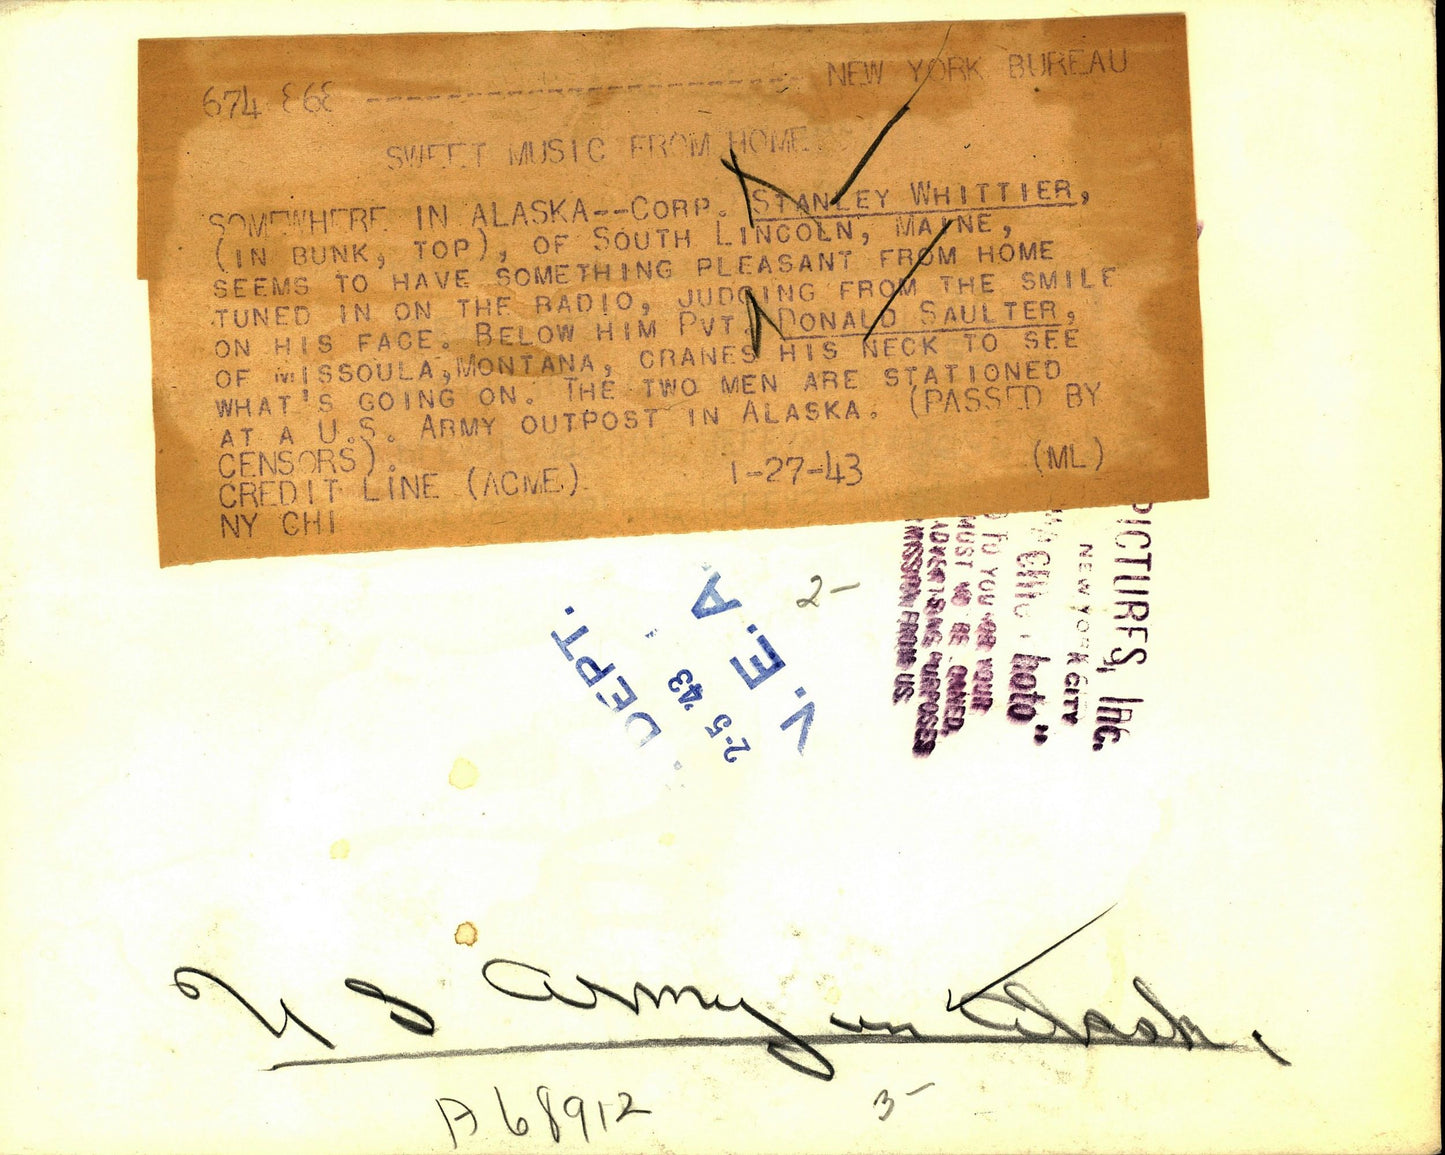 674 868 -------------------------- NEW YORK BUREAU
SWEET MUSIC FROM HOME
SOMEWHERE IN ALASKA--CORP. STANLEY WHITTIER,
(IN BUNK, TOP), OF SOUTH LINCOLN, MAINE,
SEEMS TO HAVE SOMETHING PLEASANT FROM HOME
TUNED IN ON THE RADIO, JUDGING FROM THE SMILE
ON HIS FACE. BELOW HIM PVT. DONALD SAULTER,
OF MISSOULA, MONTANA, CRANES HIS NECK TO SEE
WHAT'S GOING ON. THE TWO MEN ARE STATIONED
AT A U.S. ARMY OUTPOST IN ALASKA. (PASSED BY
CENSORS).
CREDIT LINE (ACME) 1-27-43 (ML)
NY CHI
PICTURES, Inc.
NEW YORK CITY
hoto"
TO YOU FOR YOUR
MUST NO BE
ADVERTISING PURPOSES
MISSION FROM US
N. E. A.
2-5 '43
DEPT.
2-
U S Army in Alaska.
A68912
3-